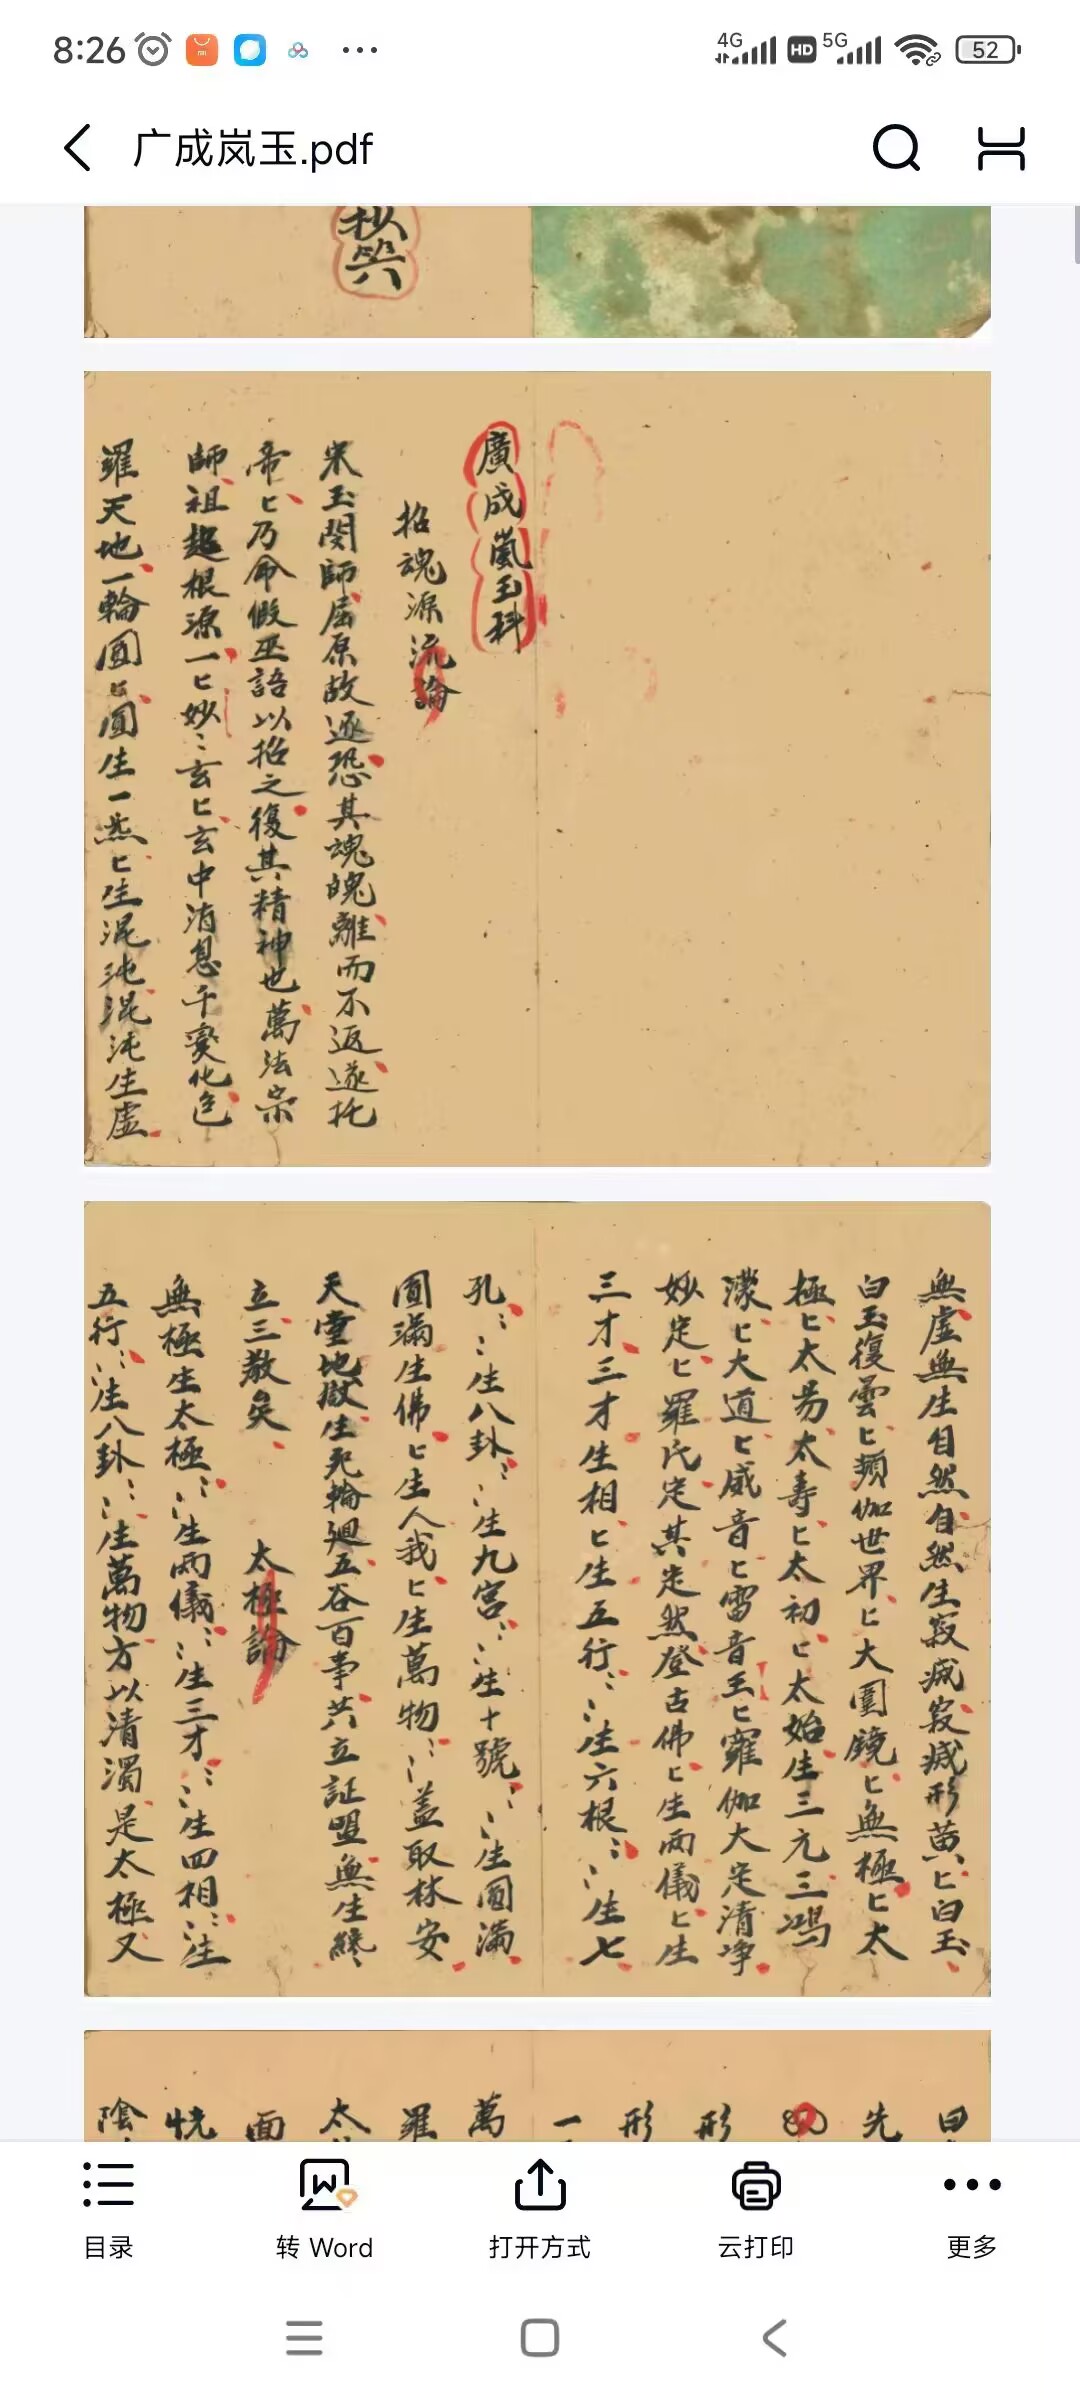 8:26
4G HD 5G 52
广成岚玉.pdf
廣成嵐玉科
招魂源流論
宋玉閔師屈原故逐恐其魂魄離而不返遂托
帝匕乃命假巫語以招之復其精神也萬法宗
師祖起根源一匕妙⺀玄匕玄中消息千變化色
羅天地一輪圓匕圓生一炁匕生混沌混沌生虛
無虛無生自然自然生寂滅寂滅形黃匕白玉
白玉復雲匕頻伽世界匕大圓鏡匕無極匕太
極匕太易太壽匕太初匕太始生三元三鴻
濛匕大道匕威音匕雷音王匕羅伽大定清净
妙定匕羅氏定其定然登古佛匕生兩儀匕生
三才三才生相匕生五行⺀⺀生六根⺀⺀生七
孔⺀⺀生八卦⺀⺀生九宮⺀⺀生十號⺀⺀生圓滿
圓滿生佛匕生人我匕生萬物⺀⺀蓋取林安
天堂地獄生死輪廻五谷百事共立証盟無生終
立三教矣
太極論
無極生太極⺀⺀生兩儀⺀⺀生三才⺀⺀生四相⺀⺀生
五行⺀⺀生八卦⺀⺀生萬物方以清濁是太極又
曰
先
形
形
一
萬
羅
太
面
恍
陰
目录
转 Word
打开方式
云打印
更多